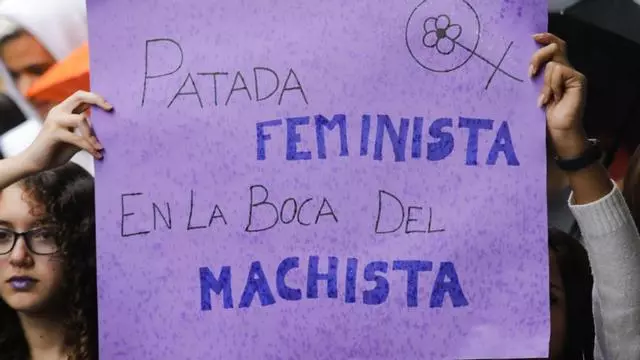 PATADA
FEMINISTA
EN LA BOCA DEL
MACHISTA